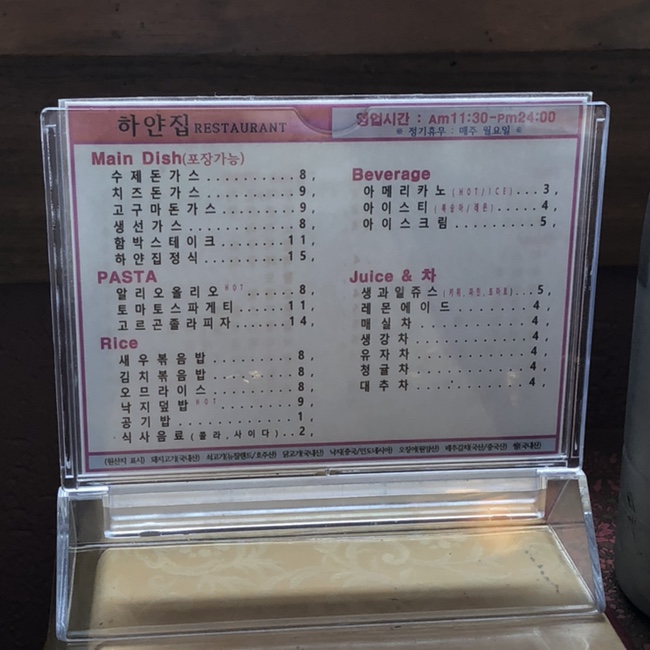 하얀집 RESTAURANT
영업시간 : Am11:30-Pm24:00
※ 정기휴무 : 매주 월요일 ※
Main Dish(포장가능)
수제돈가스..........8,
치즈돈가스..........9,
고구마돈가스........9,
생선가스............8,
함박스테이크.......11,
하얀집정식.........15,
PASTA
알리오올리오HOT......8,
토마토스파게티......11,
고르곤졸라피자......14,
Rice
새우볶음밥.........8,
김치볶음밥.........8,
오므라이스.........8,
낙지덮밥HOT........9
공기밥.............1
식사음료(콜라,사이다)..2,
Beverage
아메리카노(HOT/ICE)...3,
아이스티(복숭아/레몬).....4,
아이스크림..........5,
Juice & 차
생과일쥬스(키위,파인,토마토)...5,
레몬에이드........4,
매실차...........4,
생강차...........4,
유자차...........4,
청귤차...........4,
대추차...........4,
(원산지 표시) 돼지고기(국내산) 쇠고기(뉴질랜드/호주산) 닭고기(국내산) 낙지(중국/인도네시아) 오징어(원양산) 배추김치(국산/중국산) 쌀(국내산)